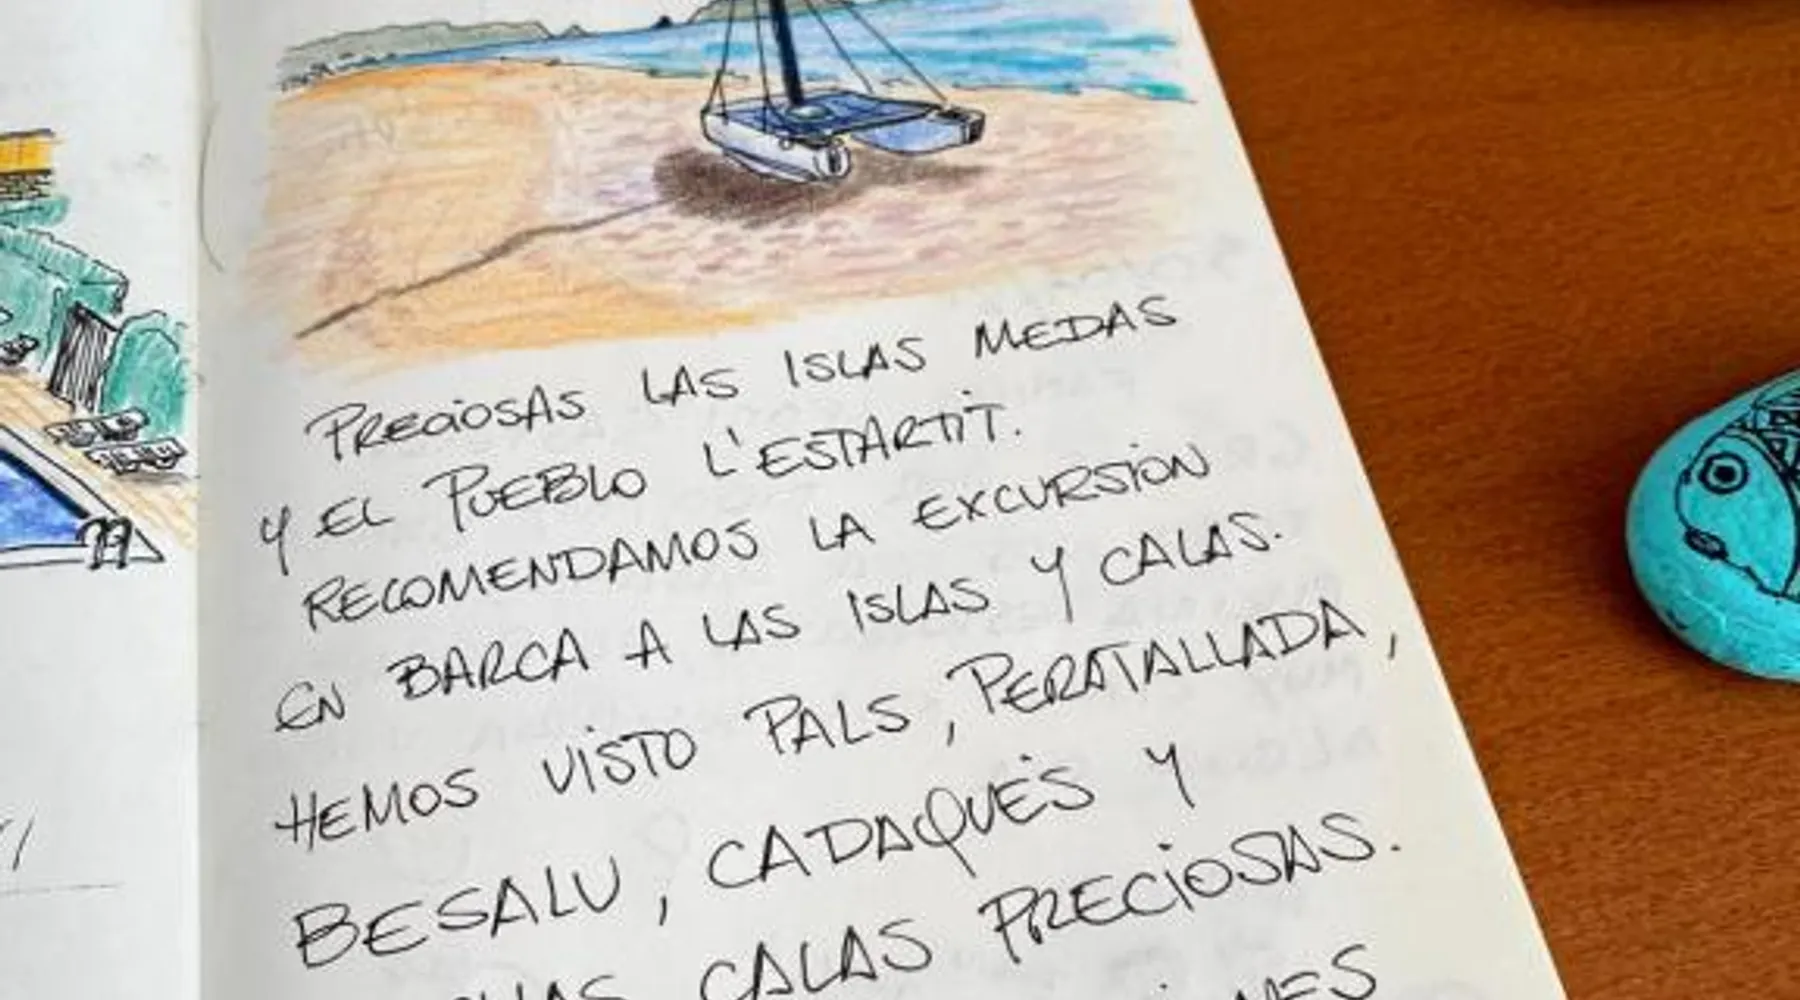 PRECIOSAS LAS ISLAS MEDAS
Y EL PUEBLO L'ESTARTIT.
RECOMENDAMOS LA EXCURSION
EN BARCA A LAS ISLAS Y CALAS.
HEMOS VISTO PALS, PERATALLADA,
BESALU, CADAQUÉS Y
CALAS PRECIOSAS.